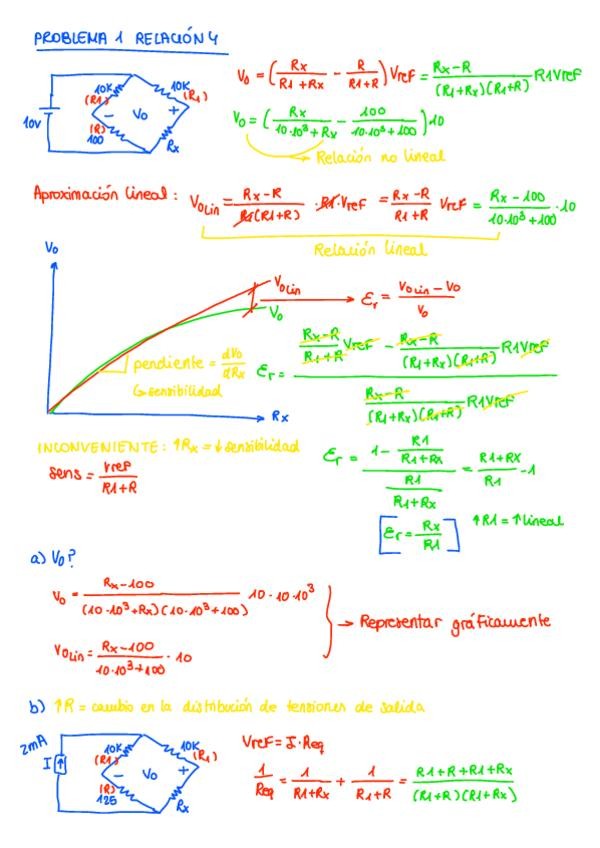 PROBLEMA 1 RELACIÓN 4
10K (R1) 10K (R1)
10V (R) 100 Vo Rx
- +
Vo = (Rx/(R1+Rx) - R/(R1+R)) Vref = (Rx-R)/((R1+Rx)(R1+R)) R1Vref
Vo = (Rx/(10·10³+Rx) - 100/(10·10³+100)) 10
Relación no lineal
Aproximación lineal: Vo Lin = (Rx-R)/(R1(R1+R)) · R1·Vref = (Rx-R)/(R1+R) Vref = (Rx-100)/(10·10³+100) · 10
Relación lineal
Vo
Vo Lin
Vo
Er = (Vo Lin - Vo)/Vo
pendiente = dVo/dRx
↳ sensibilidad
Rx
Er = ((Rx-R)/(R1+R) Vref - (Rx-R)/((R1+Rx)(R1+R)) R1Vref)/((Rx-R)/((R1+Rx)(R1+R)) R1Vref)
INCONVENIENTE: ↑Rx = ↓sensibilidad
sens = Vref/(R1+R)
Er = (1 - R1/(R1+Rx))/(R1/(R1+Rx)) = (R1+RX)/R1 - 1
[Er = Rx/R1] ↑R1 = ↑lineal
a) Vo?
Vo = (Rx-100)/((10·10³+Rx)(10·10³+100)) 10·10·10³
Vo Lin = (Rx-100)/(10·10³+100) · 10
→ Representar gráficamente
b) ↑R = cambio en la distribución de tensiones de salida
2mA I 10K (R1) 10K (R1)
(R) 125 Vo Rx
- +
Vref = I·Req
1/Req = 1/(R1+Rx) + 1/(R1+R) = (R1+R+R1+Rx)/((R1+R)(R1+Rx))